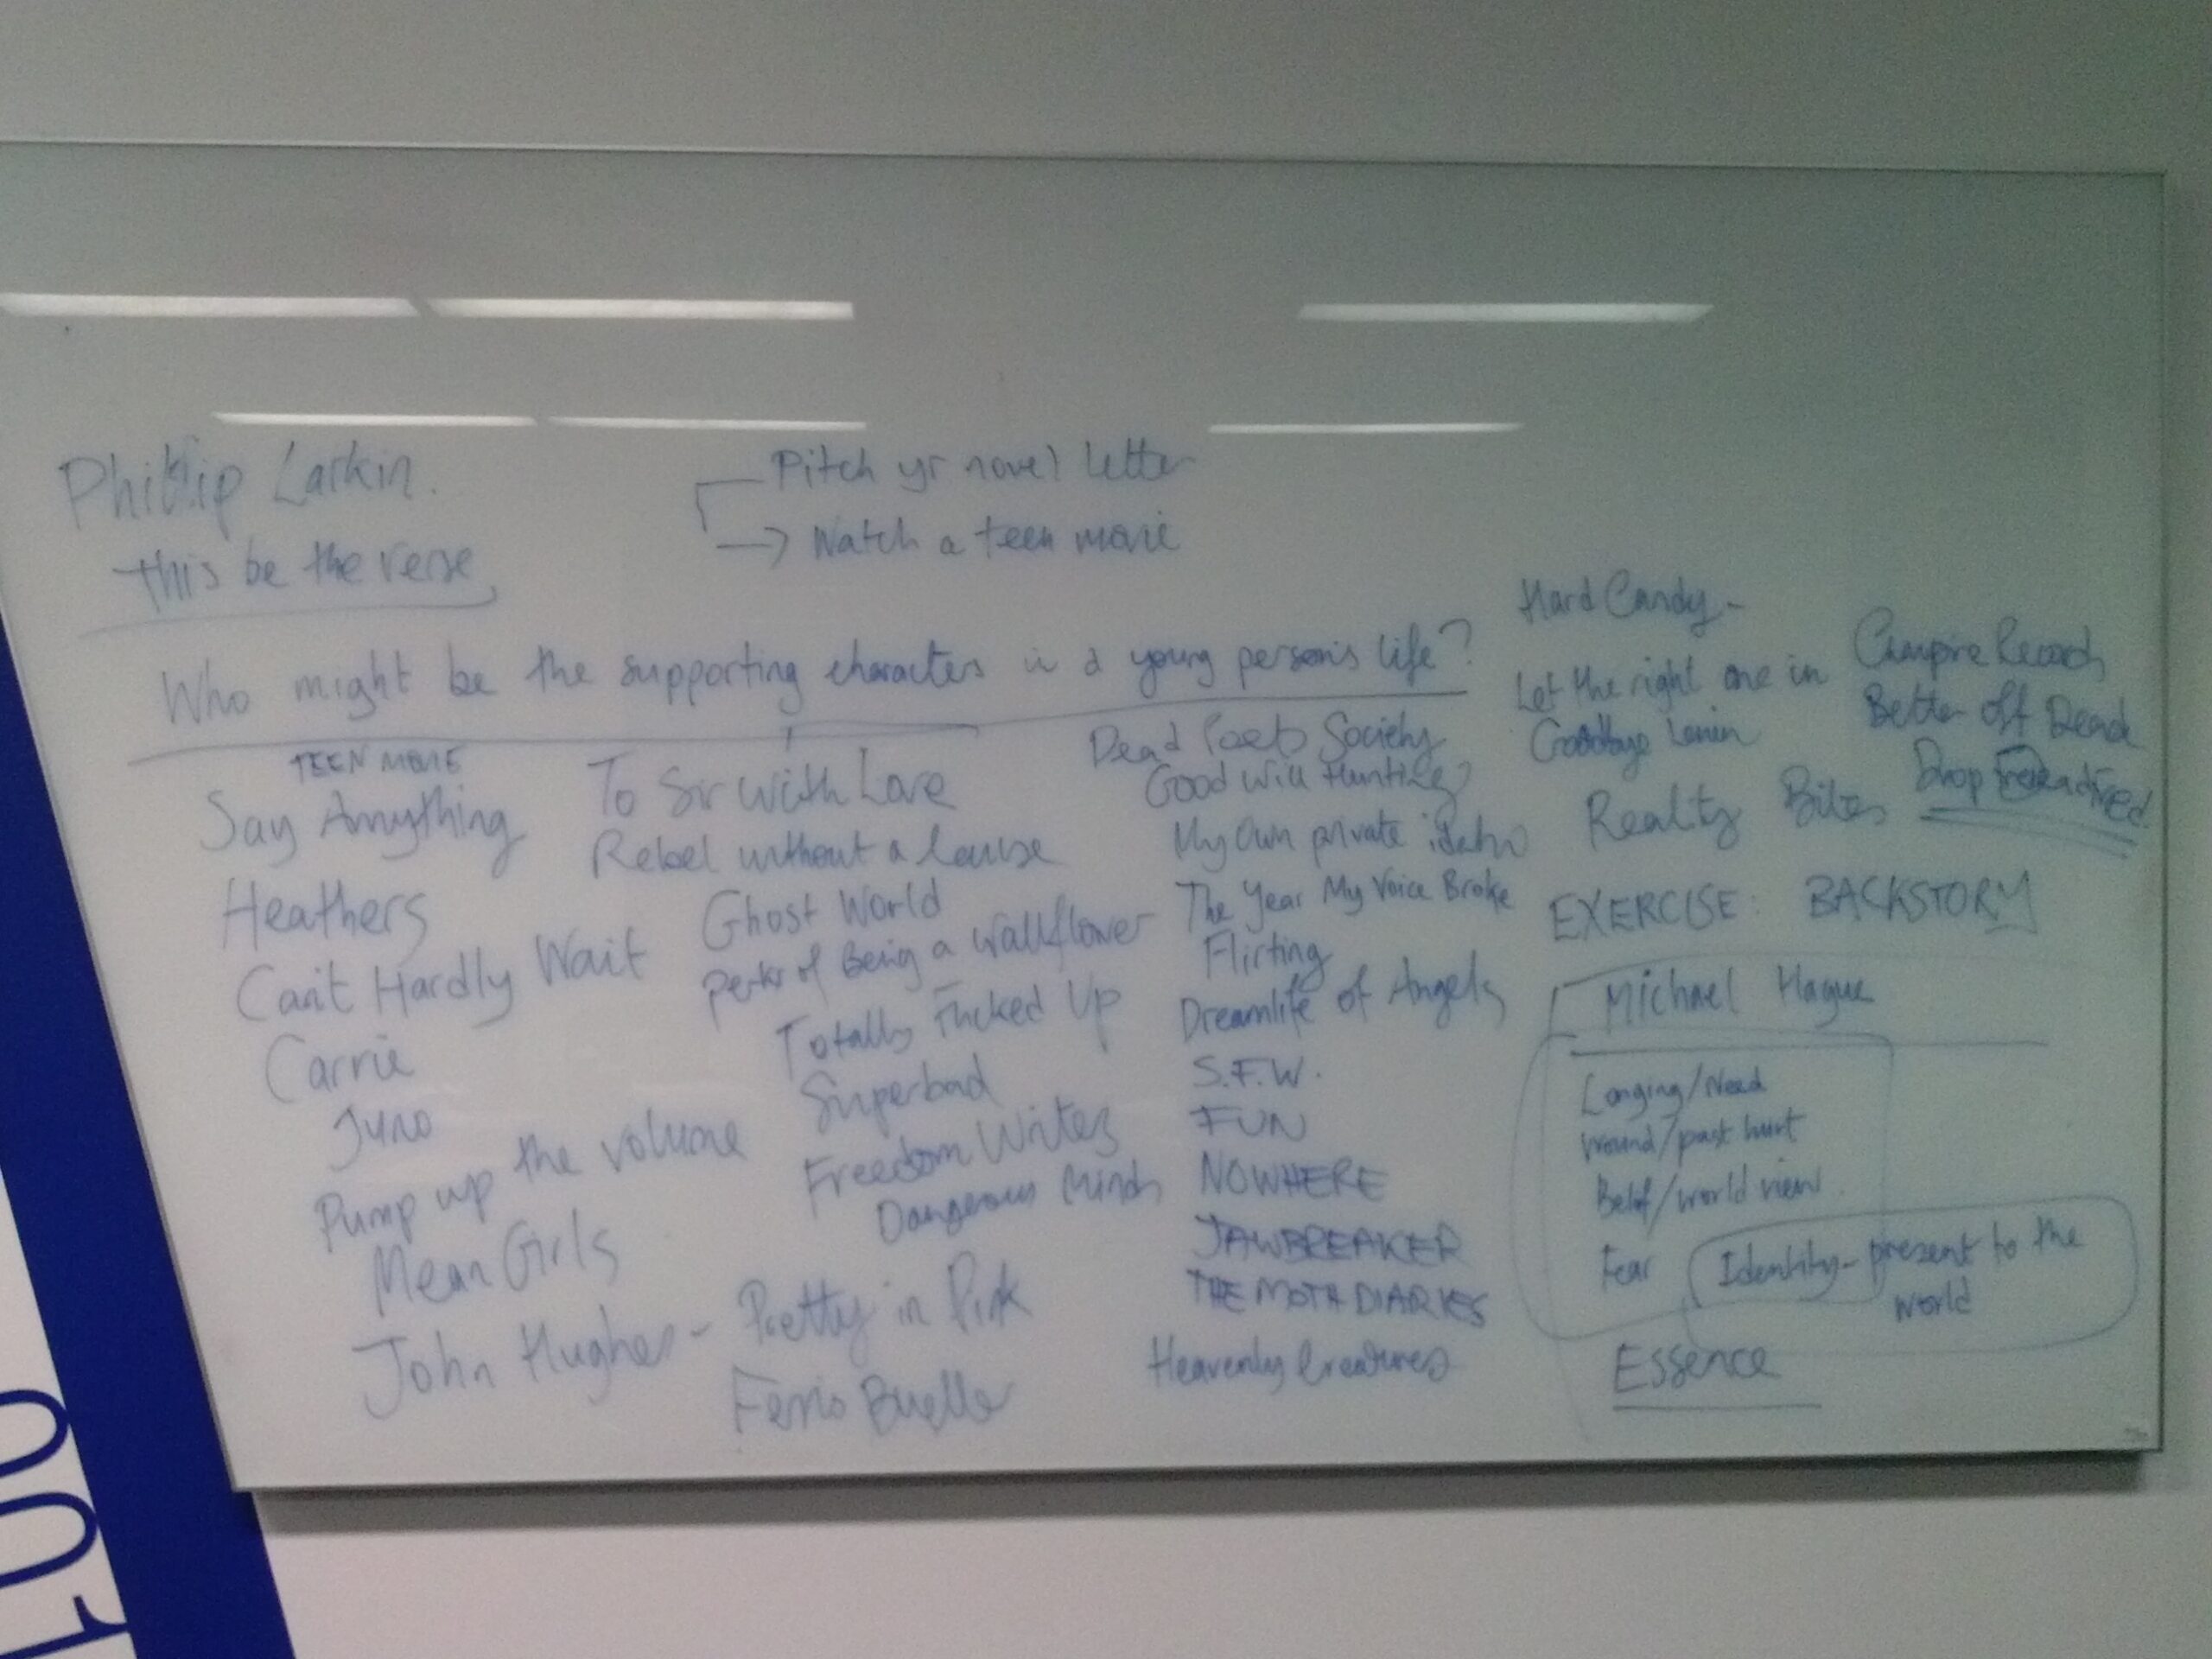 Phillip Larkin.
this be the verse
Pitch yr novel letter
→ Watch a teen movie
Who might be the supporting characters in a young person's life?
TEEN MOVIE
Say Anything
Heathers
Can't Hardly Wait
Carrie
Juno
Pump up the volume
Mean Girls
John Hughes - Pretty in Pink
Ferris Bueller
To Sir With Love
Rebel without a Cause
Ghost World
perks of Being a Wallflower
Totally Fucked Up
Superbad
Freedom Writers
Dangerous Minds
Dead Poets Society
Good Will Hunting
My Own private idaho
The Year My Voice Broke
Flirting
Dreamlife of Angels
S.F.W.
FUN
NOWHERE
JAWBREAKER
THE MOTH DIARIES
Heavenly Creatures
Hard Candy -
Let the right one in
Goodbye Lenin
Reality Bites
Empire Records
Better off Dead
Drop Dead Fred
EXERCISE: BACKSTORY
Michael Hague
Longing/Need
wound/past hurt
Belief/world view
Fear
Identity - present to the
world
Essence
001